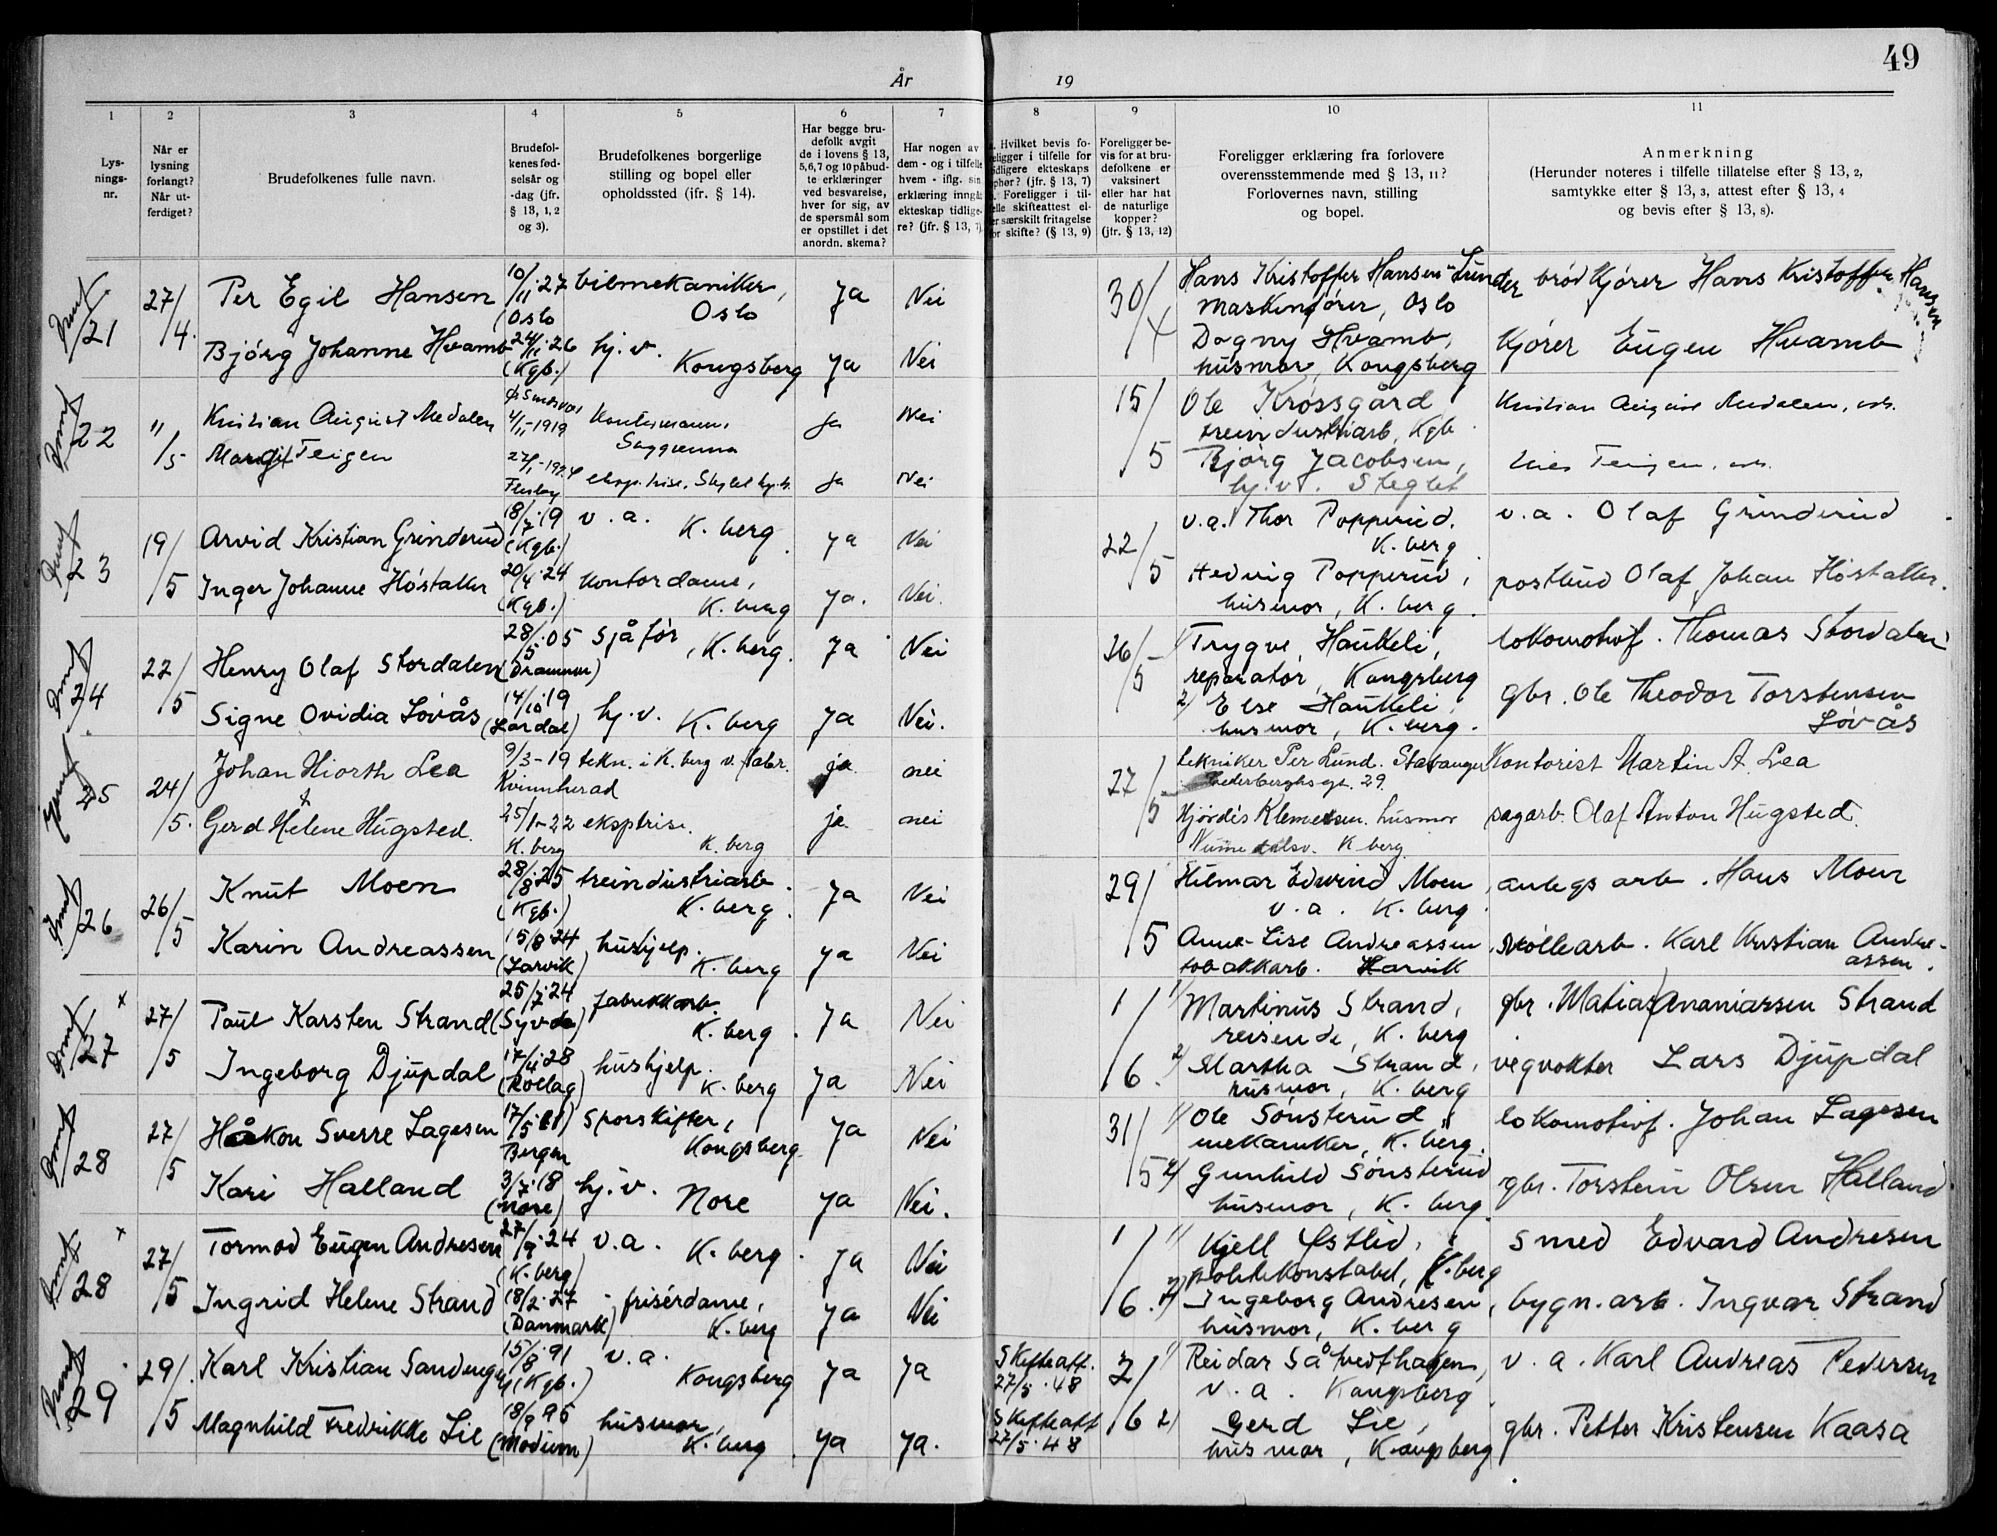 49
År 19
1 2 3 4 5 6 7 8 9 10 11
Lys-
nings-
nr.
Når er
lysning
forlangt?
Når ut-
ferdiget?
Brudefolkenes fulle navn.
Brudefol-
kenes fød-
selsår og
-dag (jfr.
§ 13, 1, 2
og 3).
Brudefolkenes borgerlige
stilling og bopel eller
opholdssted (ifr. § 14).
Har begge bru-
defolk avgit
de i lovens § 13,
5,6,7 og 10 påbud-
te erklæringer
ved besvarelse,
hver for sig, av
de spørsmål som
er opstillet i det
anordn. skema?
Har nogen av
dem - og i tilfelle
hvem - iflg. sin
erklæring inngå
ekteskap tidlige-
re? (jfr. § 13, 7)
Hvilket bevis fo-
religger i tilfelle for
tidligere ekteskaps
ophør? (jfr. § 13, 7)
Foreligger i til-
felle skifteattest el-
er særskilt fritagelse
for skifte? (§ 13, 9)
Foreligger be-
vis for at bru-
defolkene er
vaksinert
eller har hat
de naturlige
kopper?
(jfr. § 13, 12)
Foreligger erklæring fra forlovere
overensstemmende med § 13, 11?
Forlovernes navn, stilling
og bopel.
Anmerkning
(Herunder noteres i tilfelle tillatelse efter § 13, 2,
samtykke efter § 13, 3, attest efter § 13, 4
og bevis efter § 13, 8).
21 27/4. Per Egil Hansen 10/11.27 (Oslo bilmekaniker, Oslo ja Nei 30/4 Hans Kristoffer Hansen-Lunder maskinfører, Oslo brødkjører Hans Kristoffer Hansen
Bjørg Johanne Hvamb 24/11.26 (Kgb.) hj.v. Kongsberg ja Nei Dagny Hvamb, husmor, Kongsberg kjører Eugen Hvamb
22 "/5 Kristian August Medalen 4/11-1919 Saggrenna ja Nei 15/5 Ole Krossgård treindustriarb, Kgb. Kristian August Medalen,
Margit Teigen Flesberg ja Nei Bjørg Jacobsen, hj.v. Teigen,
23 19/5 Arvid Kristian Grinderud 18/7.19 (Kgb.) v.a. K.berg ja Nei 22/5 v.a. Thor Popperud. K.berg v.a. Olaf Grinderud
Inger Johanne Høstatter 20/4.24 (Kgb.) kontordame, K.berg ja. Nei. Hedvig Popperud, husmor, K.berg postbud Olaf Johan Høstatter.
24 22/5 Henry Olaf Stordalen 28/5.05 (Drammen) sjåfør, K.berg. ja Nei 26/5 1/ Trygve Haukeli, reparatør, Kongsberg lokomotivf. Thomas Stordalen
Signe Ovidia Løvås 14/10.19 (Lardal) hj.v. K.berg ja Nei. 2/ Else Haukeli, husmor, K.berg. gbr. Ole Theodor Torstensen Løvås
25 24/5. Johan Hiorth Lea 9/3-19 Kvinnherad tekn. i K.berg v.fabr. ja nei 27/5 tekniker Per Lund. Stavanger Cederberghsgt. 29. Kontorist Martin A. Lea
Gerd Helene Hugsted. 25/1-22 K.berg eksptrise. K.berg ja nei Hjørdis Klemetsen. husmor Numedalsv. K berg sagarb. Olaf Anton Hugsted.
26 26/5 Knut Moen 28/8.25 (Kgb.) treindustriarb. K.berg. ja Nei 29/5 Hilmar Edvind Moen, v.a. K.berg. anlegsarb. Hans Moen
Karin Andreassen 15/8.24 (Larvik) hushjelp. K.berg ja Nei Anne-Lise Andreassen tobakkarb. Larvik Karl Kristian Andreassen.
27 27/5 Paul Karsten Strand 25/7.24 (Syvde) fabrikkarb. K.berg. ja Nei 1/6. 1/ Martinus Strand, reisende, K.berg gbr. Matias Ananiassen Strand
Ingeborg Djupdal 17/4.28 (Rollag) hushjelp. K.berg ja Nei 2/ Martha Strand, husmor, K.berg vegvokter Lars Djupdal
28 27/5 Håkon Sverre Lagesen 17/5 Bergen sporskifter, Kongsberg. ja Nei 31/5 1/ Ole Sønsterud, mekaniker, K.berg. lokomotivf. Johan Lagesen
Kari Halland 3/7.18 (Nore) hj.v. Nore ja Nei. 2/ Gunhild Sønsterud husmor, K.berg. gbr. Torstein Olsen Halland.
28 27/5 Tormod Eugen Andresen 27/9.24 (K.berg) v.a. K.berg. ja Nei 1/6. 1/ Kjell Østlid, politikonstabel, K.berg smed Edvard Andresen
Ingrid Helene Strand 18/2.27 (Danmark) frisérdame, K.berg ja Nei 2/ Ingeborg Andresen, husmor, K.berg bygn.arb. Ingvar Strand
29 29/5 Karl Kristian Sandengen 15/8.91 (Kgb.) v.a. Kongsberg ja ja Skifteatt. 27/5.48 2/6 1/ Reidar Såtvedthagen, v.a. Kongsberg v.a. Karl Andreas Pedersen
Magnhild Fredrikke Lie 18/9 95 (Modum) husmor, K.berg ja ja. Skifteatt 27/5.48 2/ Gerd Lie, husmor, Kongsberg gbr. Petter Kristensen Kaasa